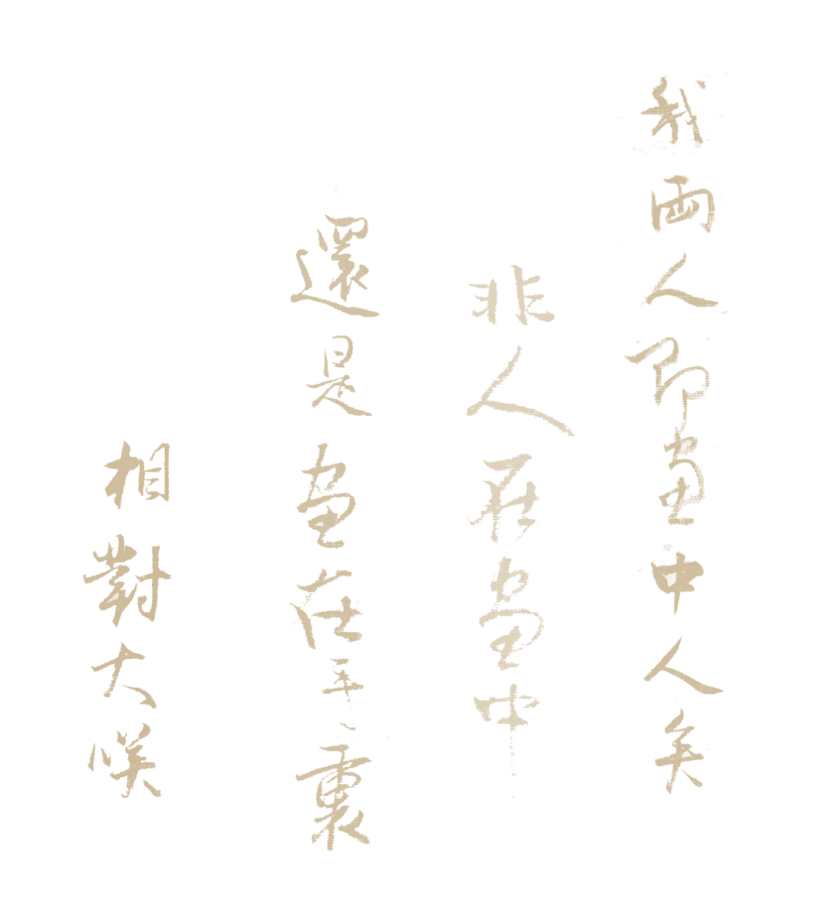 我兩人即畫中人矣
非人在畫中
還是畫在裏
相對大咲